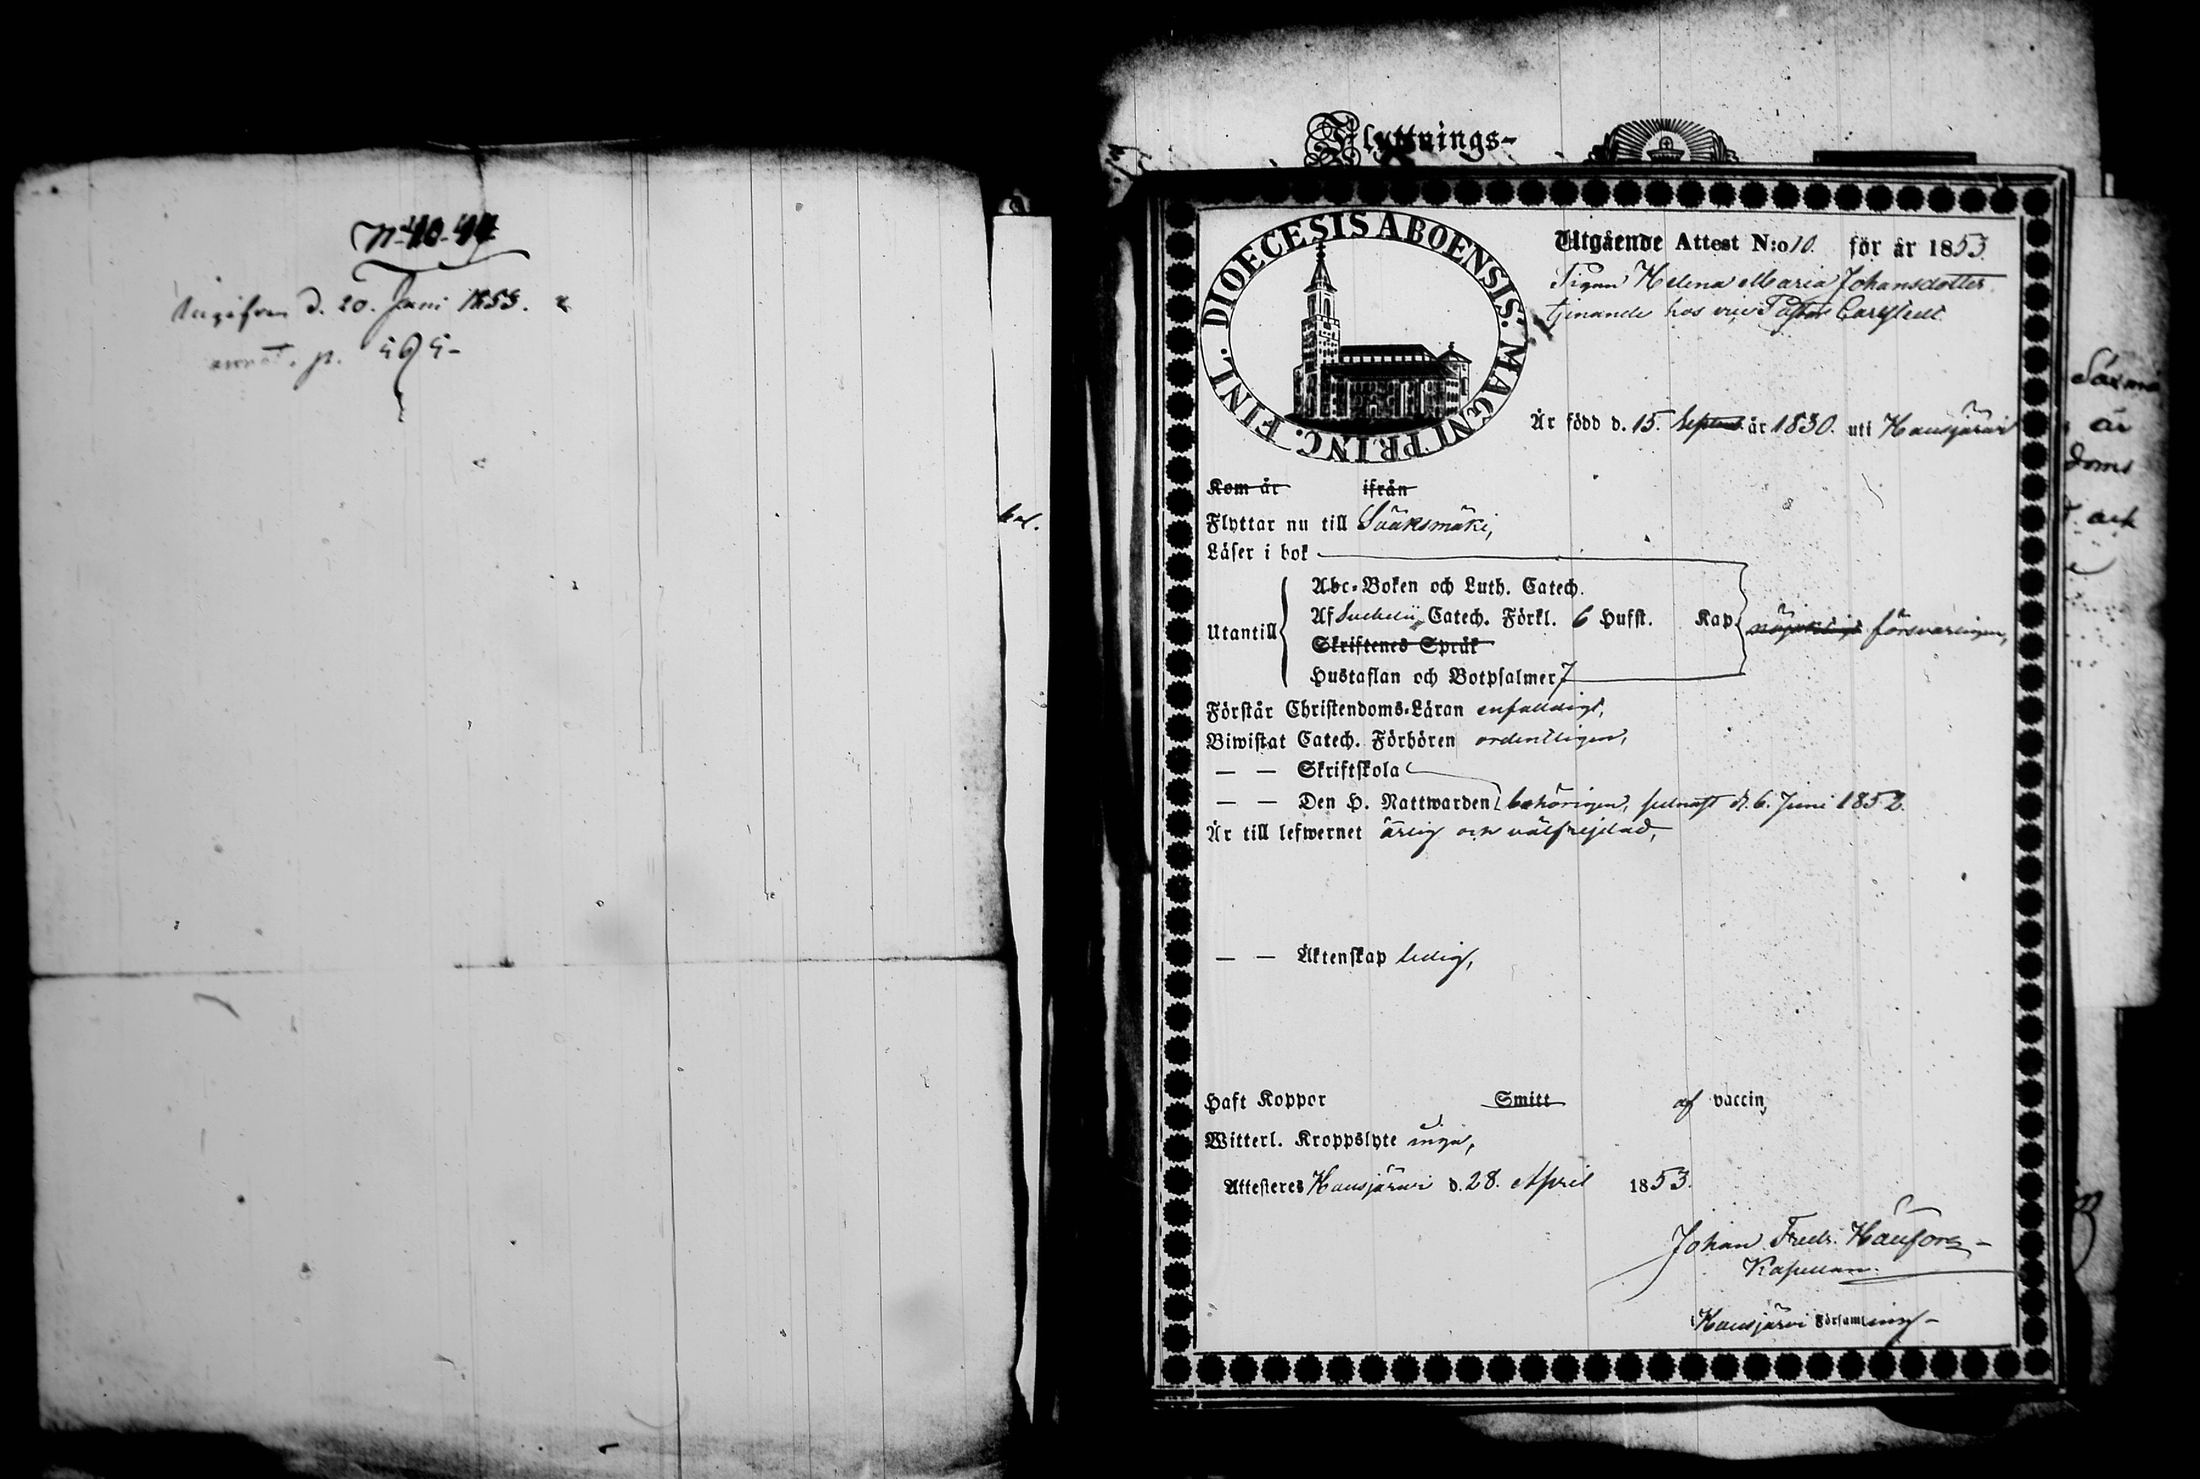 N 40. 44
Ingifven d. 20. Juni 1853.
annot. p. 595-
Flyttnings-
DIOECESIS ABOENSIS. MAGNI PRINC. FINL.
Utgående Attest N:o 10. för år 1853.
Pigan Helena Maria Johansdotter,
tjenande hos vice Pastor Carlstedt
Är född d. 15. Septemb. år 1830. uti Hausjärvi
Kom år ifrån
Flyttar nu till Sääksmäki,
Läser i bok
Abc-Boken och Luth. Catech.
Utantill Af Catech. Förkl. 6 Hufst. Kap. försvarligen,
Skriftenes Språk
Hustaflan och Botpsalmer 7
Förstår Christendoms-Läran enfaldigt,
Biwistat Catech. Förhören ordentligen,
— — Skriftskola
— — Den H. Nattwarden behörigen, senast d. 6. Juni 1852.
Är till lefwernet ärlig och välfrejdad,
— — Äktenskap ledig,
Haft Koppor Smitt af vaccin,
Witterl. Kroppslyte inga,
Attesteres Hausjärvi d. 28. April 1853.
Johan Fredr.
Kapellan.
i Hausjärvi Församling-
är
doms
och